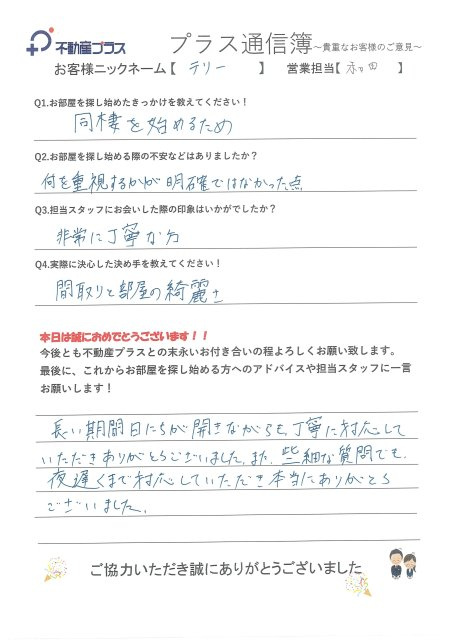 不動産プラス プラス通信簿 ～貴重なお客様のご意見～
お客様ニックネーム【 テリー 】 営業担当【 和田 】
Q1.お部屋を探し始めたきっかけを教えてください！
同棲を始めるため
Q2.お部屋を探し始める際の不安などはありましたか？
何を重視するかが明確ではなかった点
Q3.担当スタッフにお会いした際の印象はいかがでしたか？
非常に丁寧な方
Q4.実際に決心した決め手を教えてください！
間取りと部屋の綺麗さ
本日は誠におめでとうございます！！
今後とも不動産プラスとの末永いお付き合いの程よろしくお願い致します。
最後に、これからお部屋を探し始める方へのアドバイスや担当スタッフに一言
お願いします！
長い期間日にちが開きながらも、丁寧に対応して
いただきありがとうございました。また、些細な質問でも、
夜遅くまで対応していただき本当にありがとう
ございました。
ご協力いただき誠にありがとうございました